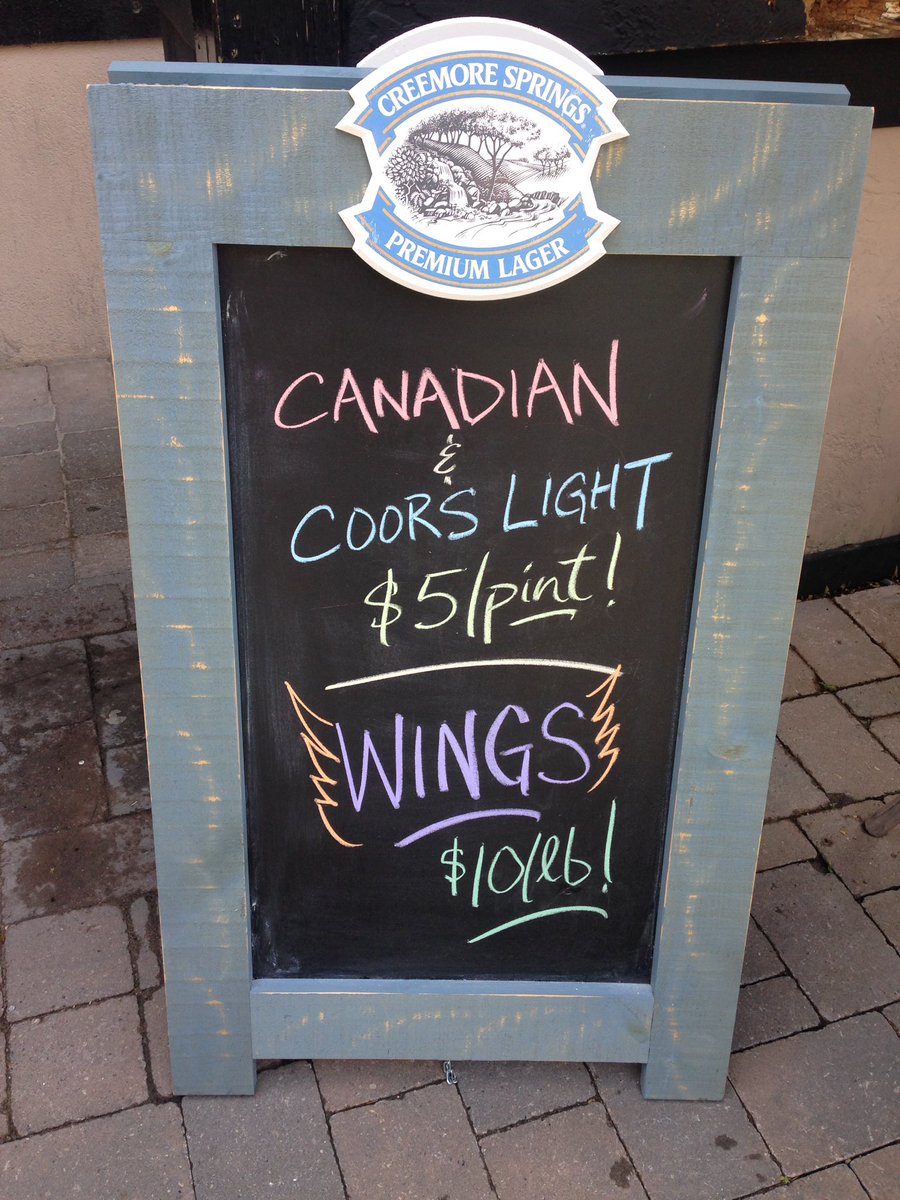 CREEMORE SPRINGS
PREMIUM LAGER
CANADIAN
&
COORS LIGHT
$5/pint!
WINGS
$10/lb!